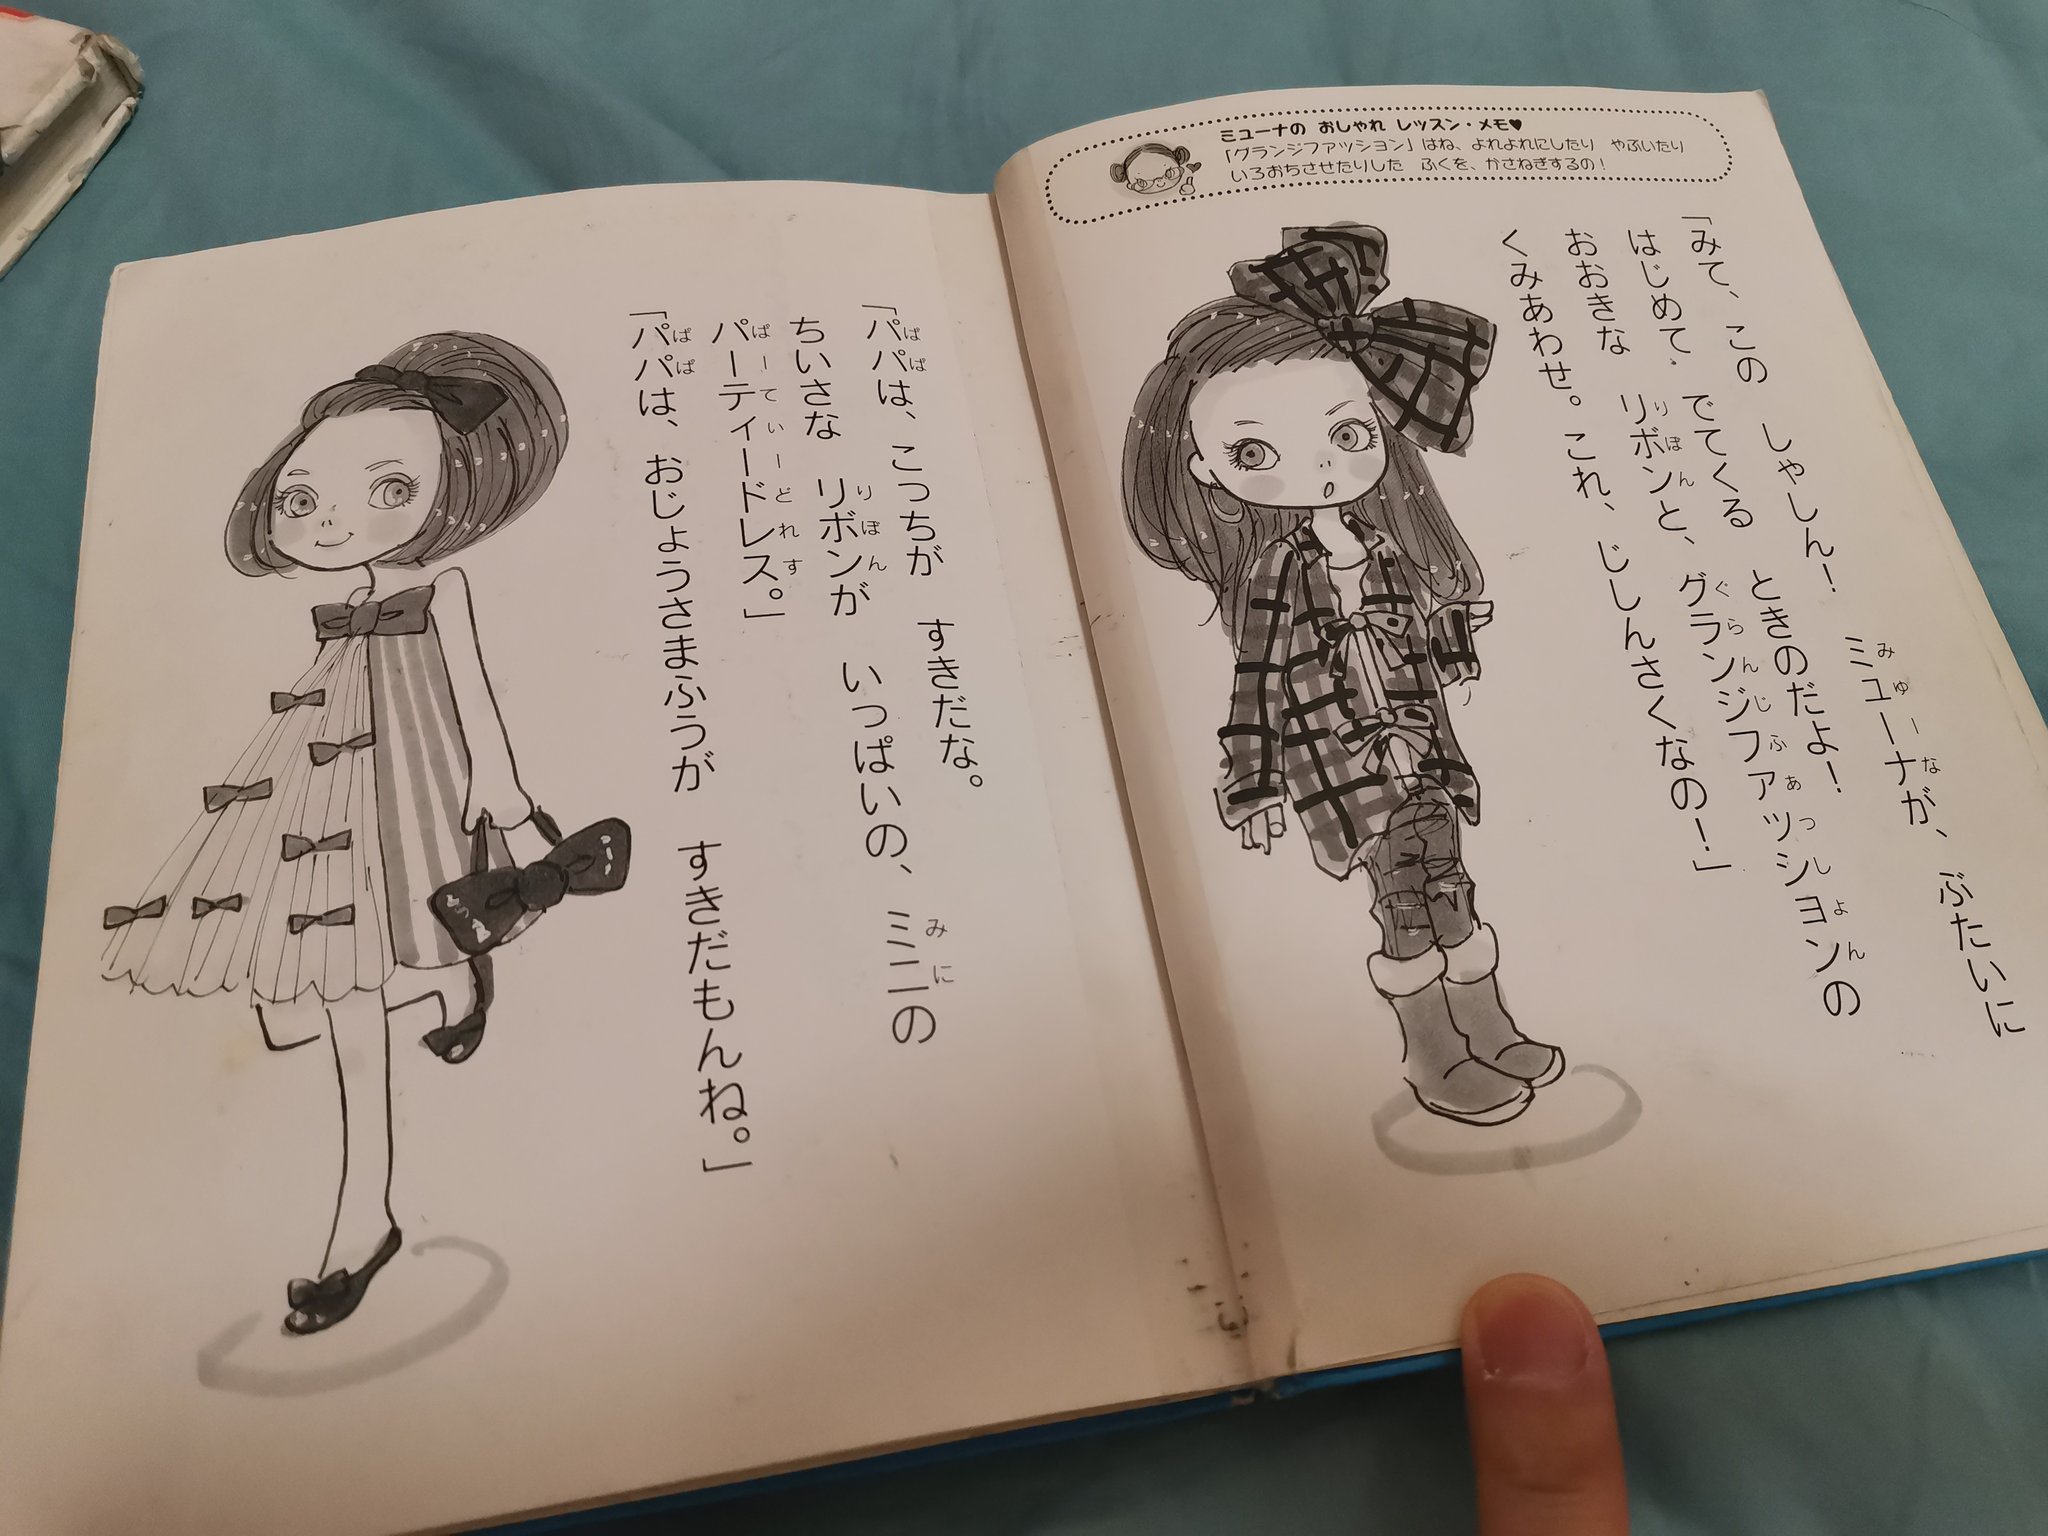 ミューナの おしゃれ レッスン・メモ♥
「グランジファッション」はね、よれよれにしたり やぶいたり
いろおちさせたりした ふくを、かさねぎするの!
「みて、この しゃしん! ミューナが、ぶたいに
はじめて でてくる ときのだよ! 
おおきな リボンと、グランジファッションの
くみあわせ。これ、じしんさくなの!」
「パパは、こっちが すきだな。
ちいさな リボンが いっぱいの、ミニの
パーティードレス。」
「パパは、おじょうさまふうが すきだもんね。」